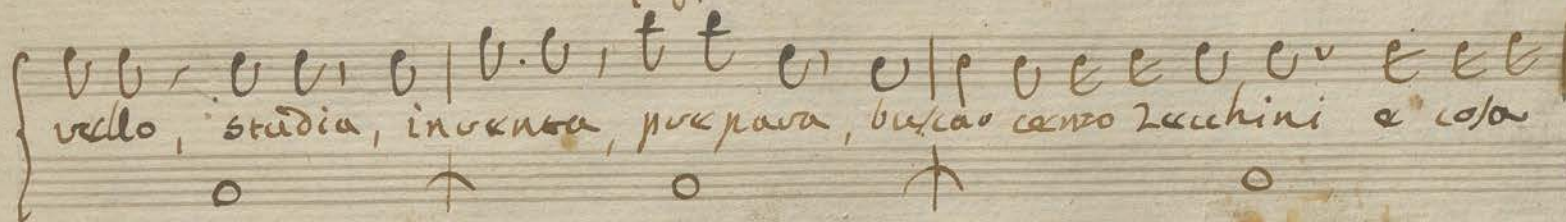 vello, studia, inventa, prepara, buscar cento Zecchini è cosa